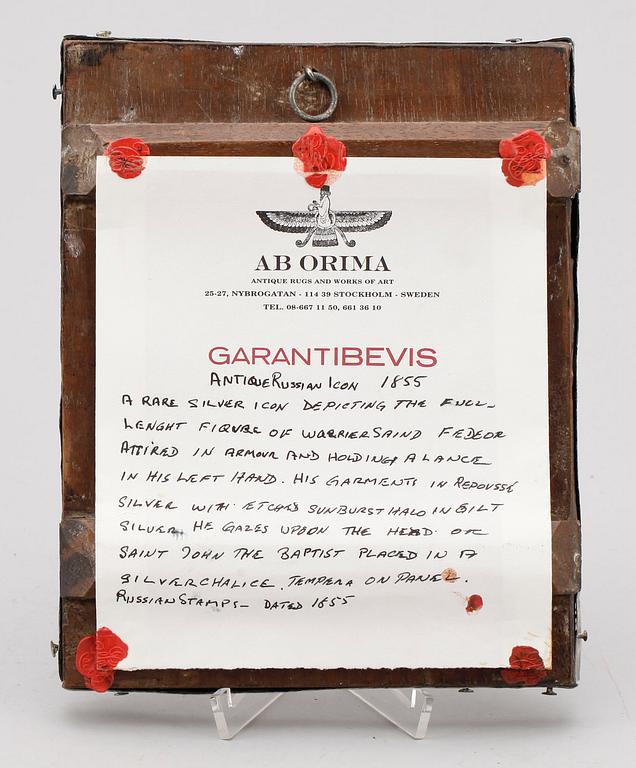 AB ORIMA
ANTIQUE RUGS AND WORKS OF ART
25-27, NYBROGATAN - 114 39 STOCKHOLM - SWEDEN
TEL. 08-667 11 50, 661 36 10
GARANTIBEVIS
ANTIQUE RUSSIAN ICON 1855
A RARE SILVER ICON DEPICTING THE FULL-
LENGHT FIQURE OF WARRIER SAIND FEDEOR
ATTIRED IN ARMOUR AND HOLDING A LANCE
IN HIS LEFT HAND. HIS GARMENTS IN REPOUSSÉ
SILVER WITH ETCHED SUNBURST HALO IN GILT
SILVER HE GAZES UPOON THE HEAD OF
SAINT JOHN THE BAPTIST PLACED IN A
SILVER CHALICE. TEMPERA ON PANEL.
RUSSIAN STAMPS - DATED 1855